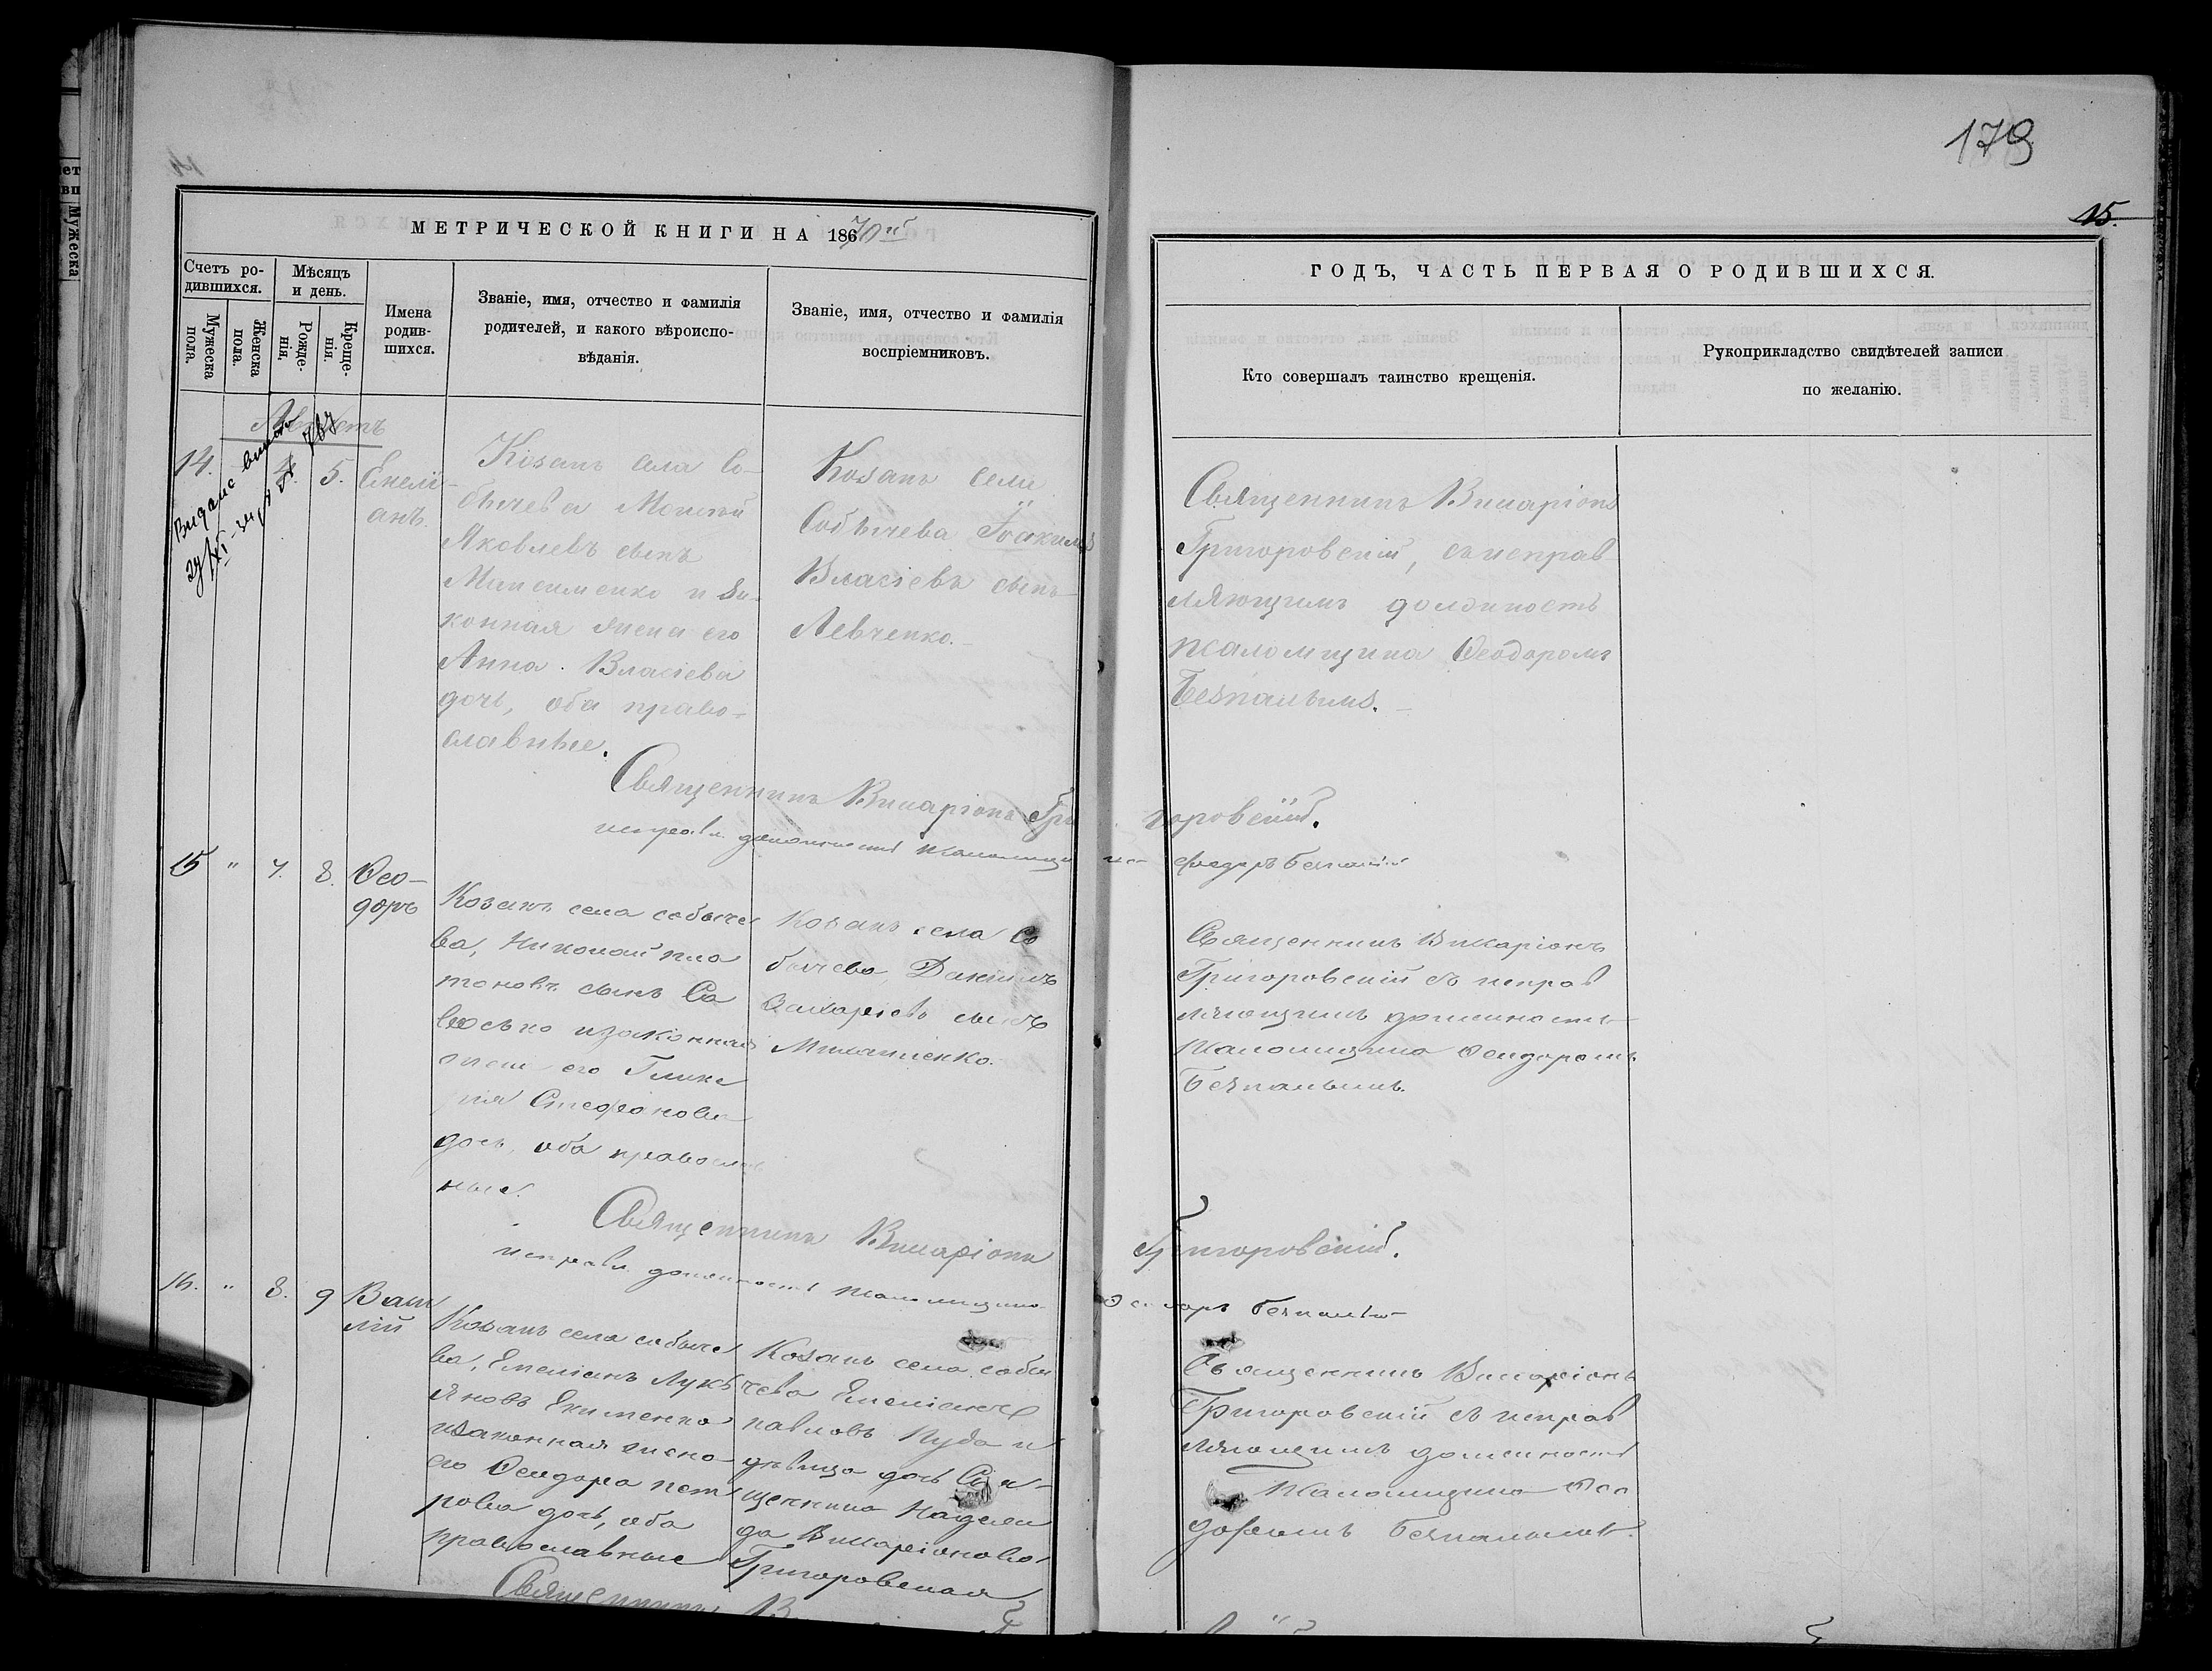 179
15.
МЕТРИЧЕСКОЙ КНИГИ НА 1870й
ГОДЪ, ЧАСТЬ ПЕРВАЯ О РОДИВШИХСЯ.
Счетъ ро-
дившихся.
Мужеска
пола.
Женска
пола.
Мѣсяцъ
и день.
Рожде-
нія.
Креще-
нія.
Имена
родив-
шихся.
Званіе, имя, отчество и фамилія
родителей, и какого вѣроиспо-
вѣданія.
Званіе, имя, отчество и фамилія
воспріемниковъ.
Кто совершалъ таинство крещенія.
Рукоприкладство свидѣтелей записи
по желанію.
Августъ
14.
4. 5. Емелі-
анъ.
Козакъ села Со-
бычева
Яковлевъ сынъ
Максименко и за-
конная жена его
Анна Власіева
дочь, оба право-
славные.
Козакъ села
Собычева Іоакимъ
Власіевъ сынъ
Левченко.
Священникъ Виларіонъ
Григоровскій, съ исправ
ляющимъ должность
псаломщика Ѳеодоромъ
Безпалымъ.
Священникъ Виларіонъ Григоровскій.
исправл. должность псаломщика Федоръ Безпалый
15 " 7. 8. Ѳео-
доръ
Козакъ села собыче
ва, Николай пла
тоновъ сынъ Са
и законная
жена его Глике
рія Стефанова
дочь, оба православ
ные.
Козакъ села Со
бычева, Даніилъ
Захаріевъ сынъ
Священникъ Виларіонъ
Григоровскій съ исправ
ляющимъ должность
псаломщика Ѳеодоромъ
Безпалымъ.
Священникъ Виларіонъ Григоровскій.
исправл. должность псаломщика Ѳеодоръ Безпалый
16. " 8. 9 Васи
лій
Козакъ села собыче
ва, Емеліанъ Лукь
яновъ Екименко
и законная жена
его Ѳеодора пет
рова дочь, оба
православные
Козакъ села собы
чева Емеліанъ
павловъ Куда и
дѣвица дочь Свя-
щенника Надеж
да Виларіонова
Григоровская
Священникъ Виларіонъ
Григоровскій съ исправ
ляющимъ должность
псаломщика Ѳео
доромъ Безпалымъ.
Священникъ